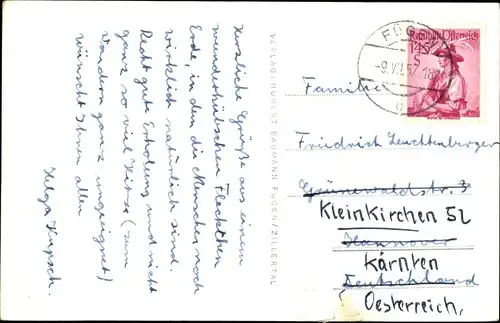 Herzliche Grüße aus einem
wunderhübschen Fleckchen
Erde, in dem die Menschen noch
wirklich natürlich sind.
Recht gute Erholung und nicht
ganz so viel Hitze (zum
Wandern ganz ungeeignet)
wünscht Ihnen allen
Helga Hupsch.
VERLAG: HUBERT BAUMANN FÜGEN/ZILLERTAL
FÜG
-9.VII.57.18
Republik Österreich
1.45
S
Familie
Friedrich Leuchtenberger
Grünewaldstr. 3
Kleinkirchen 52
Hannover
Kärnten
Deutschland
Oesterreich,